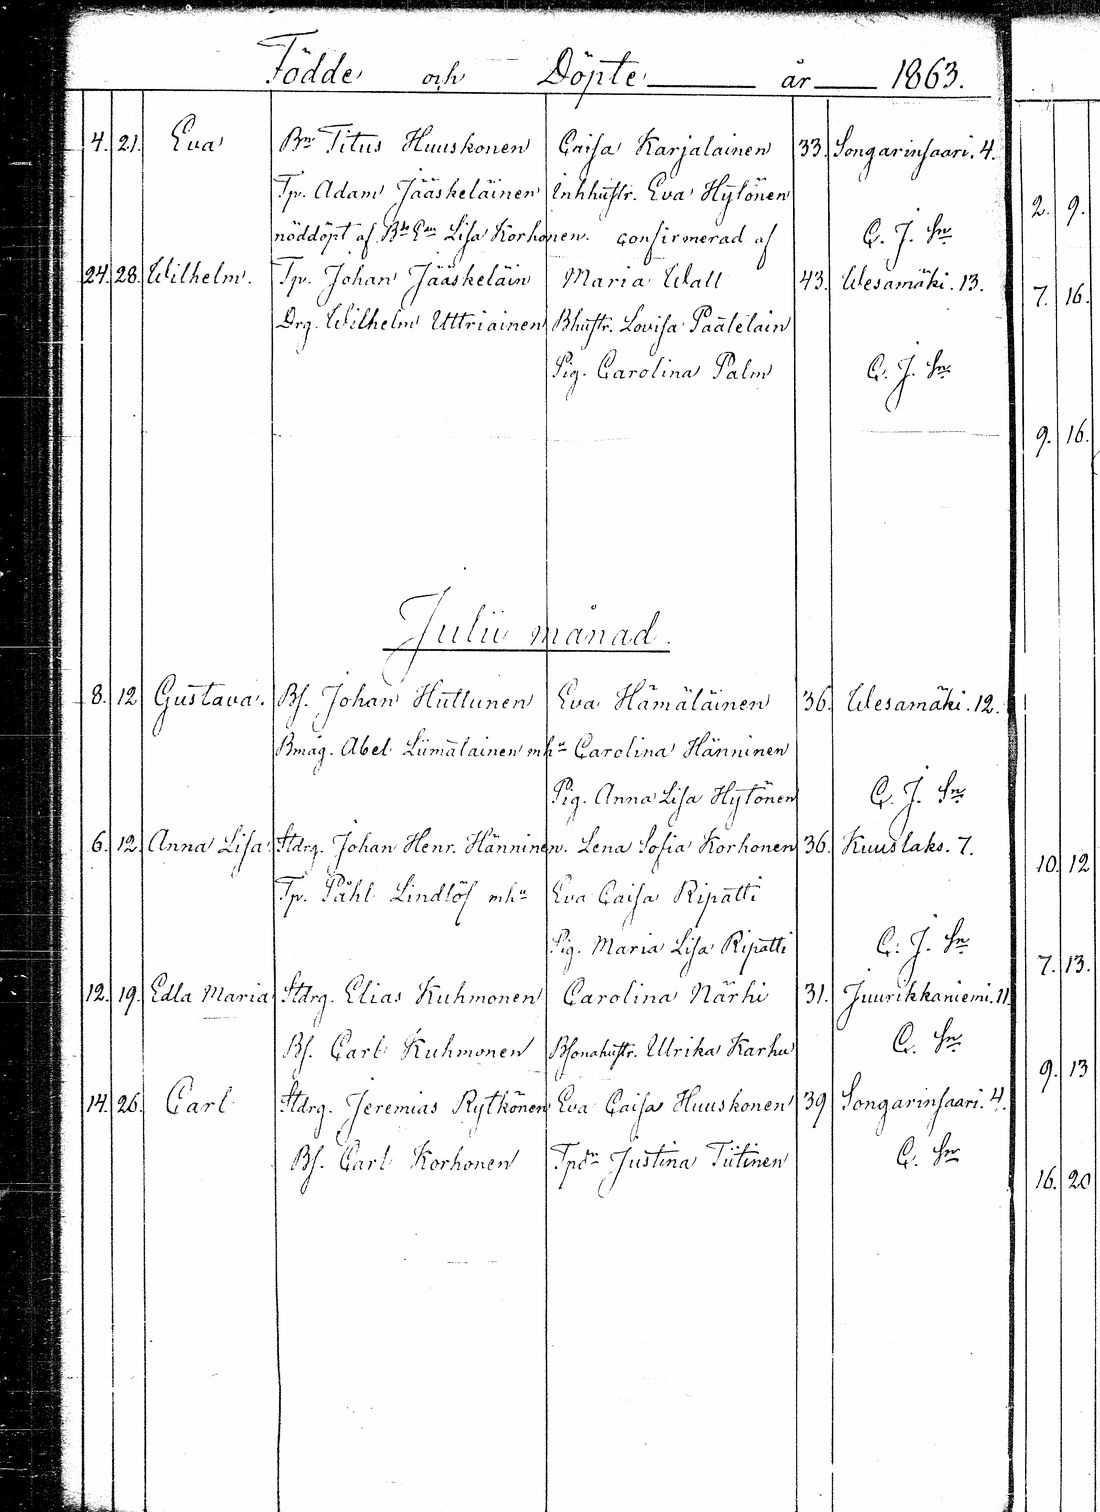 Födde och Döpte år 1863.
4. 21. Eva Bn Titus Huuskonen Caisa Karjalainen 33. Songarinsaari. 4.
Tp. Adam Jääskeläinen Inhhustr. Eva Hytönen
nöddöpt af Lisa Korhonen. confirmerad af C. J. Sn
24. 28. Wilhelm. Tp. Johan Jääskeläin Maria Wall 43. Wesamäki. 13.
Drg. Wilhelm Uttriainen Bhustr. Lovisa Päätelain
Pig. Carolina Palm C. J. Sn
Julii månad.
8. 12 Gustava. Bs. Johan Huttunen Eva Hämäläinen 36. Wesamäki. 12.
Bmåg. Abel Liimatainen mhu Carolina Hänninen
Pig. Anna Lisa Hytönen C. J. Sn
6. 12. Anna Lisa Stdrg. Johan Henr. Hänninen. Lena Sofia Korhonen 36. Kuuslaks. 7.
Tp. Påhl Lindlöf mhu Eva Caisa Ripatti
Pig. Maria Lisa Ripatti C. J. Sn
12. 19. Edla Maria Stdrg. Elias Kuhmonen Carolina Närhi 31. Juurikkaniemi. 11
Bs. Carl Kuhmonen Bsonahustr. Ulrika Karhu C. Sn
14. 26. Carl Stdrg. Jeremias Rytkönen Eva Caisa Huuskonen 39 Songarinsaari. 4.
Bs. Carl Korhonen Tpdr Justina Tiitinen C. Sn
2. 9.
7. 16.
9. 16.
10. 12
7. 13.
9. 13
16. 20